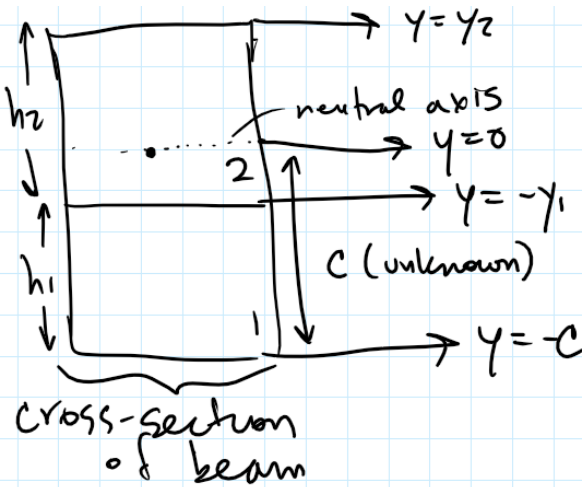 y = y2
h2
neutral axis
y = 0
2
y = -y1
h1
C (unknown)
1
y = -C
cross-section
of beam